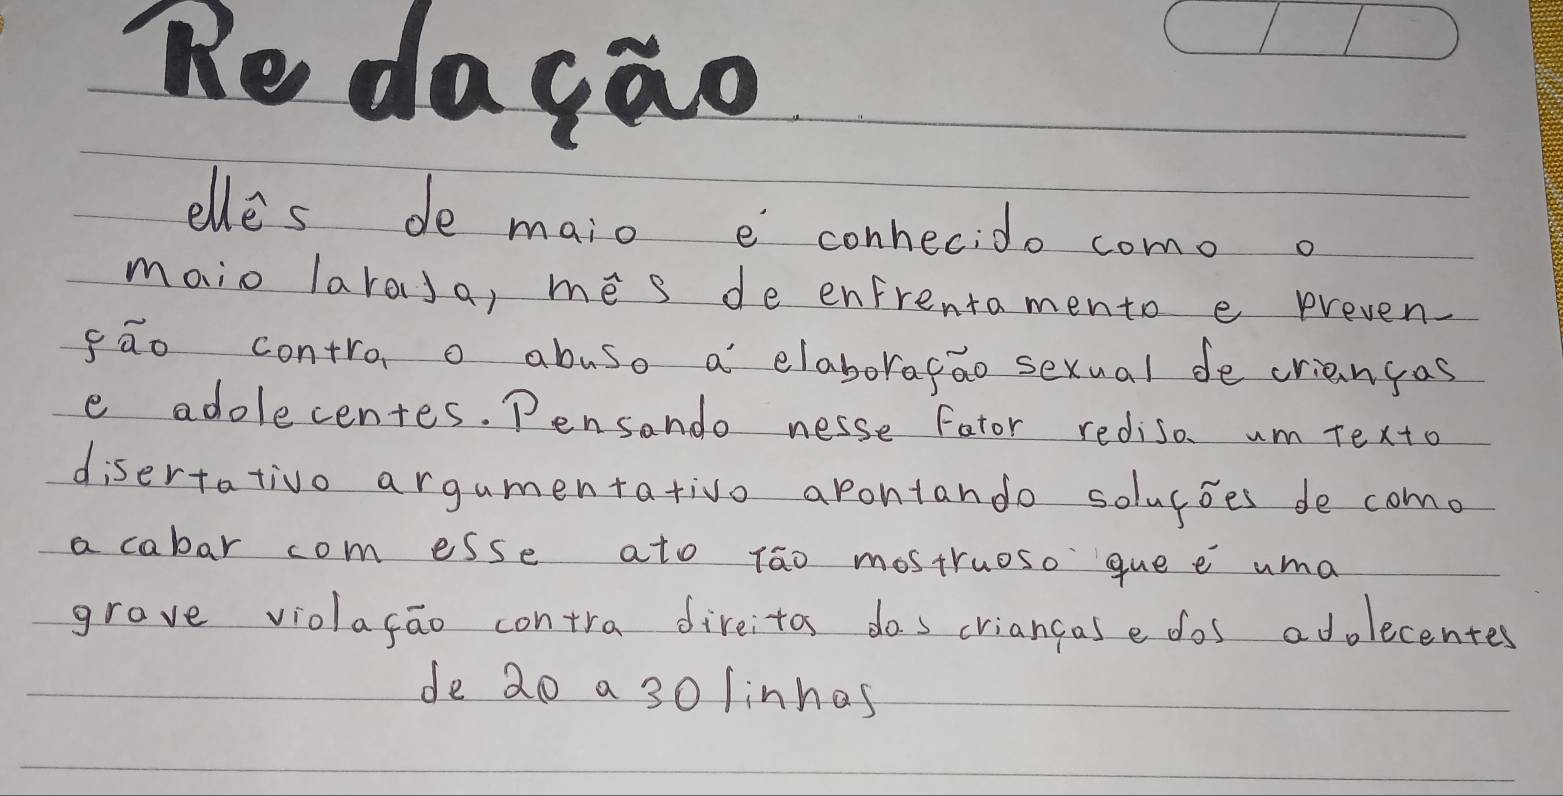 Redação
ellês de maio é conhecido como o
maio laraja, mês de enfrentamento e preven-
ção contra o abuso á elaboração sexual de crianças
e adolecentes. Pensando nesse fator redisa um texto
disertativo argumentativo apontando soluções de como
acabar com esse ato tão mostruoso que é uma
grave violação contra direitos das crianças e dos adolecentes
de 20 a 30 linhas